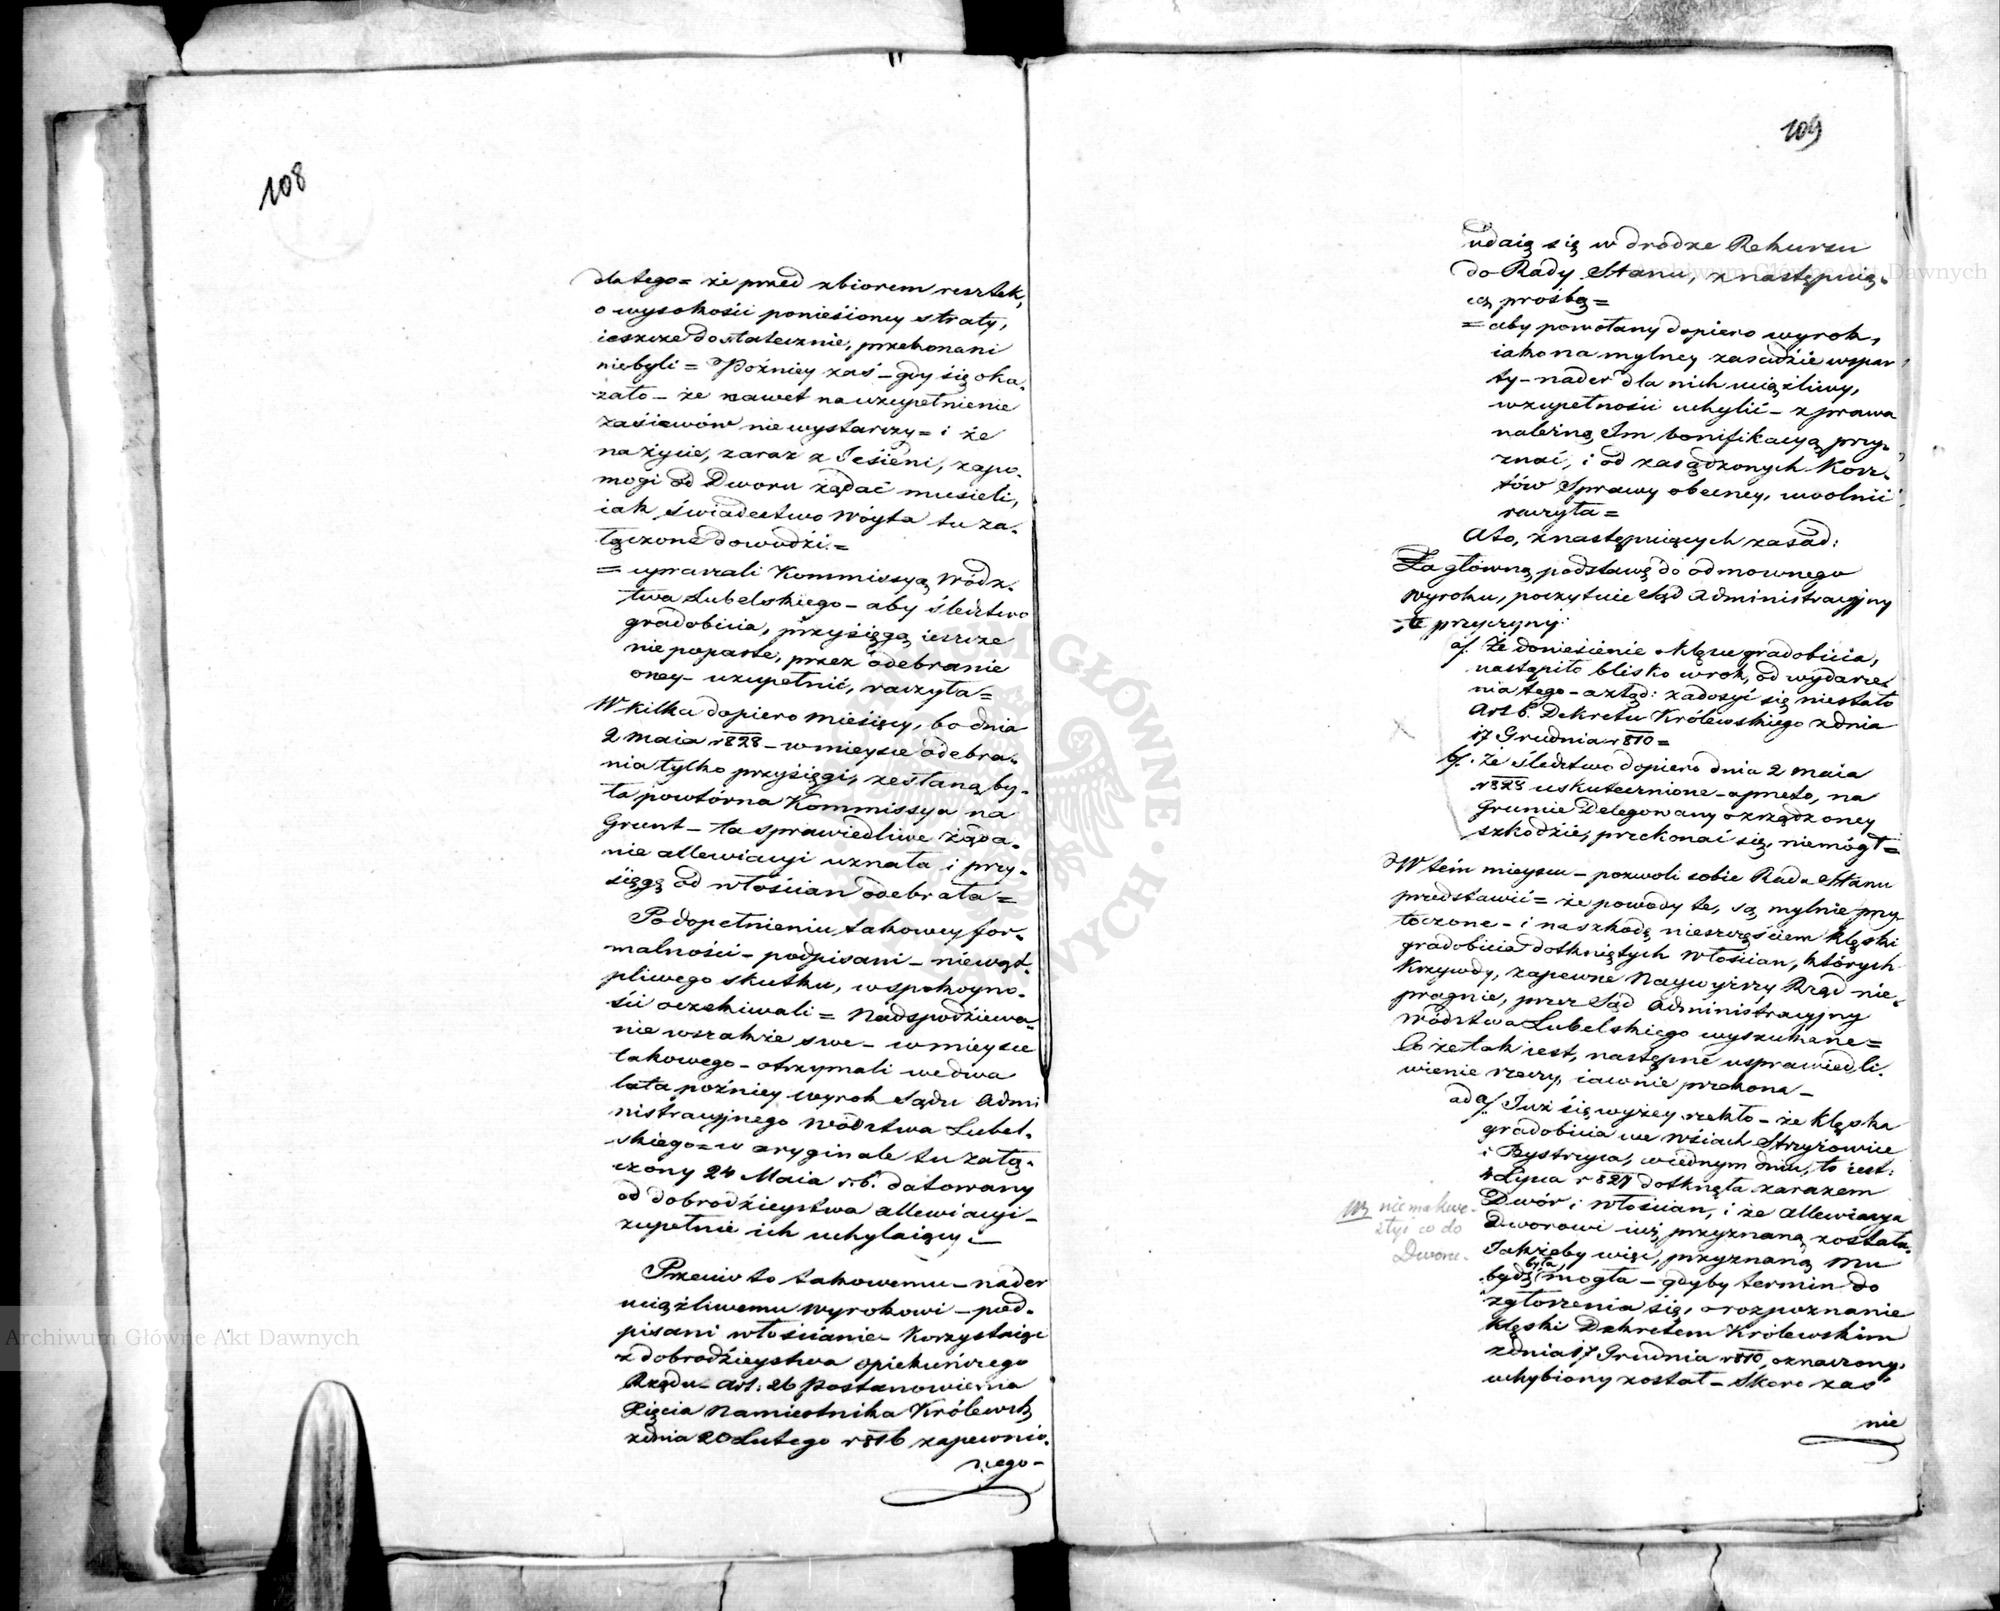 108
dla tego= że przed zbiorem resztek,
o wysokości poniesioney straty,
ieszcze dostatecznie, przekonani
niebyli = Poźniey zaś – gdy się oka-
zało – że nawet na uzupełnienie
zasiewów nie wystarczy = i że
na życie, zaraz z Jesieni, zapo-
mogi od Dworu żądać musieli,
iak świadectwo Wóyta tu za-
łączone dowodzi. =
= upraszali Kommissyą Wódz-
twa Lubelskiego – aby śledztwo
gradobicia, przysięgą ieszcze
nie poparte, przez odebranie
oney – uzupełnić, raczyła =
W kilka dopiero miesięcy, bo dnia
2 Maia r 828 – w mieysce odebra-
nia tylko przysięgi, zesłaną by-
ła powtórna Kommissya na
Grunt – ta sprawiedliwe żąda-
nie allewiacyi uznała i przy-
sięgę od włościan odebrała =
Po dopełnieniu takowey for-
malności – podpisani – niewąt-
pliwego skutku, w spokoyno-
ści oczekiwali = Nadspodziewa-
nie wszakże swe – w mieysce
takowego – otrzymali we dwa
lata poźniey wyrok Sądu Admi
nistracyjnego Wództwa Lubel-
skiego = w oryginale tu załą-
czony 24 Maia r. b. datowany
od dobrodzieystwa allewiacyi –
zupełnie ich uchylaiący: –
Przeciw to takowemu – nader
uciążliwemu wyrokowi – pod-
pisani włościanie – korzystaiąc
z dobrodzieystwa opiekuńczego
Rządu – Art: 26 Postanowienia
Xięcia Namiestnika Królewsk:
z dnia 20 Lutego r 816 zapewnio-
nego –
109
udaią się w drodze Rekursu
do Rady Stanu, z następuią-
cą prośbą =
= aby powołany dopiero wyrok,
iako na mylney zasadzie wspar
ty – nader dla nich uciążliwy,
w zupełności uchylić – z prawa
należną Im bonifikacyą przy-
znać, i od zasądzonych Kosz-
tów Sprawy obecney, uwolnić
raczyła =
A to, z następuiących zasad:
Za główną podstawę do odmownego
wyroku, poczytuie Sąd Administracyjny
te przyczyny:
a/. Że doniesienie o klęsce gradobicia,
nastąpiło blisko w rok, od wydarze-
nia tego – a ztąd: zadosyć się niestało
Art 6. Dekretu Królewskiego z dnia
17 Grudnia r 810 =
b/. Że śledztwo dopiero dnia 2 Maia
r 828 uskutecznione – a przeto, na
Gruncie Delegowany o zrządzoney
szkodzie, przekonać się, niemógł =
W tém mieyscu – pozwoli sobie Rada Stanu
przedstawić = że powody te, są mylnie przy-
toczone – i na szkodę nieszczęściem klęski
gradobicia dotkniętych włościan, których
Krzywdy, zapewne Naywyższy Rząd nie-
pragnie, przez Sąd Administracyjny
Wództwa Lubelskiego wyszukane =
Co że tak iest, następne usprawiedli-
wienie rzeczy, iawnie przekona –
ad a/. Już się wyżey rzekło – że klęska
gradobicia we Wsiach Stryżowice
i Bystrzyca, w iednym dniu, to iest:
4 Lipca r 827 dotknęła zarazem
Dwór i włościan, i że allewiacya
Dworowi iuż przyznaną została.
Jakżeby więc, przyznaną Mu
była
bydź mogła – gdyby termin do
zgłoszenia się, o rozpoznanie
klęski Dekretem Królewskim
z dnia 17 Grudnia r 810, oznaczony,
uchybiony został – Skoro zaś
nie
nie ma kwe-
styi co do
Dworu –